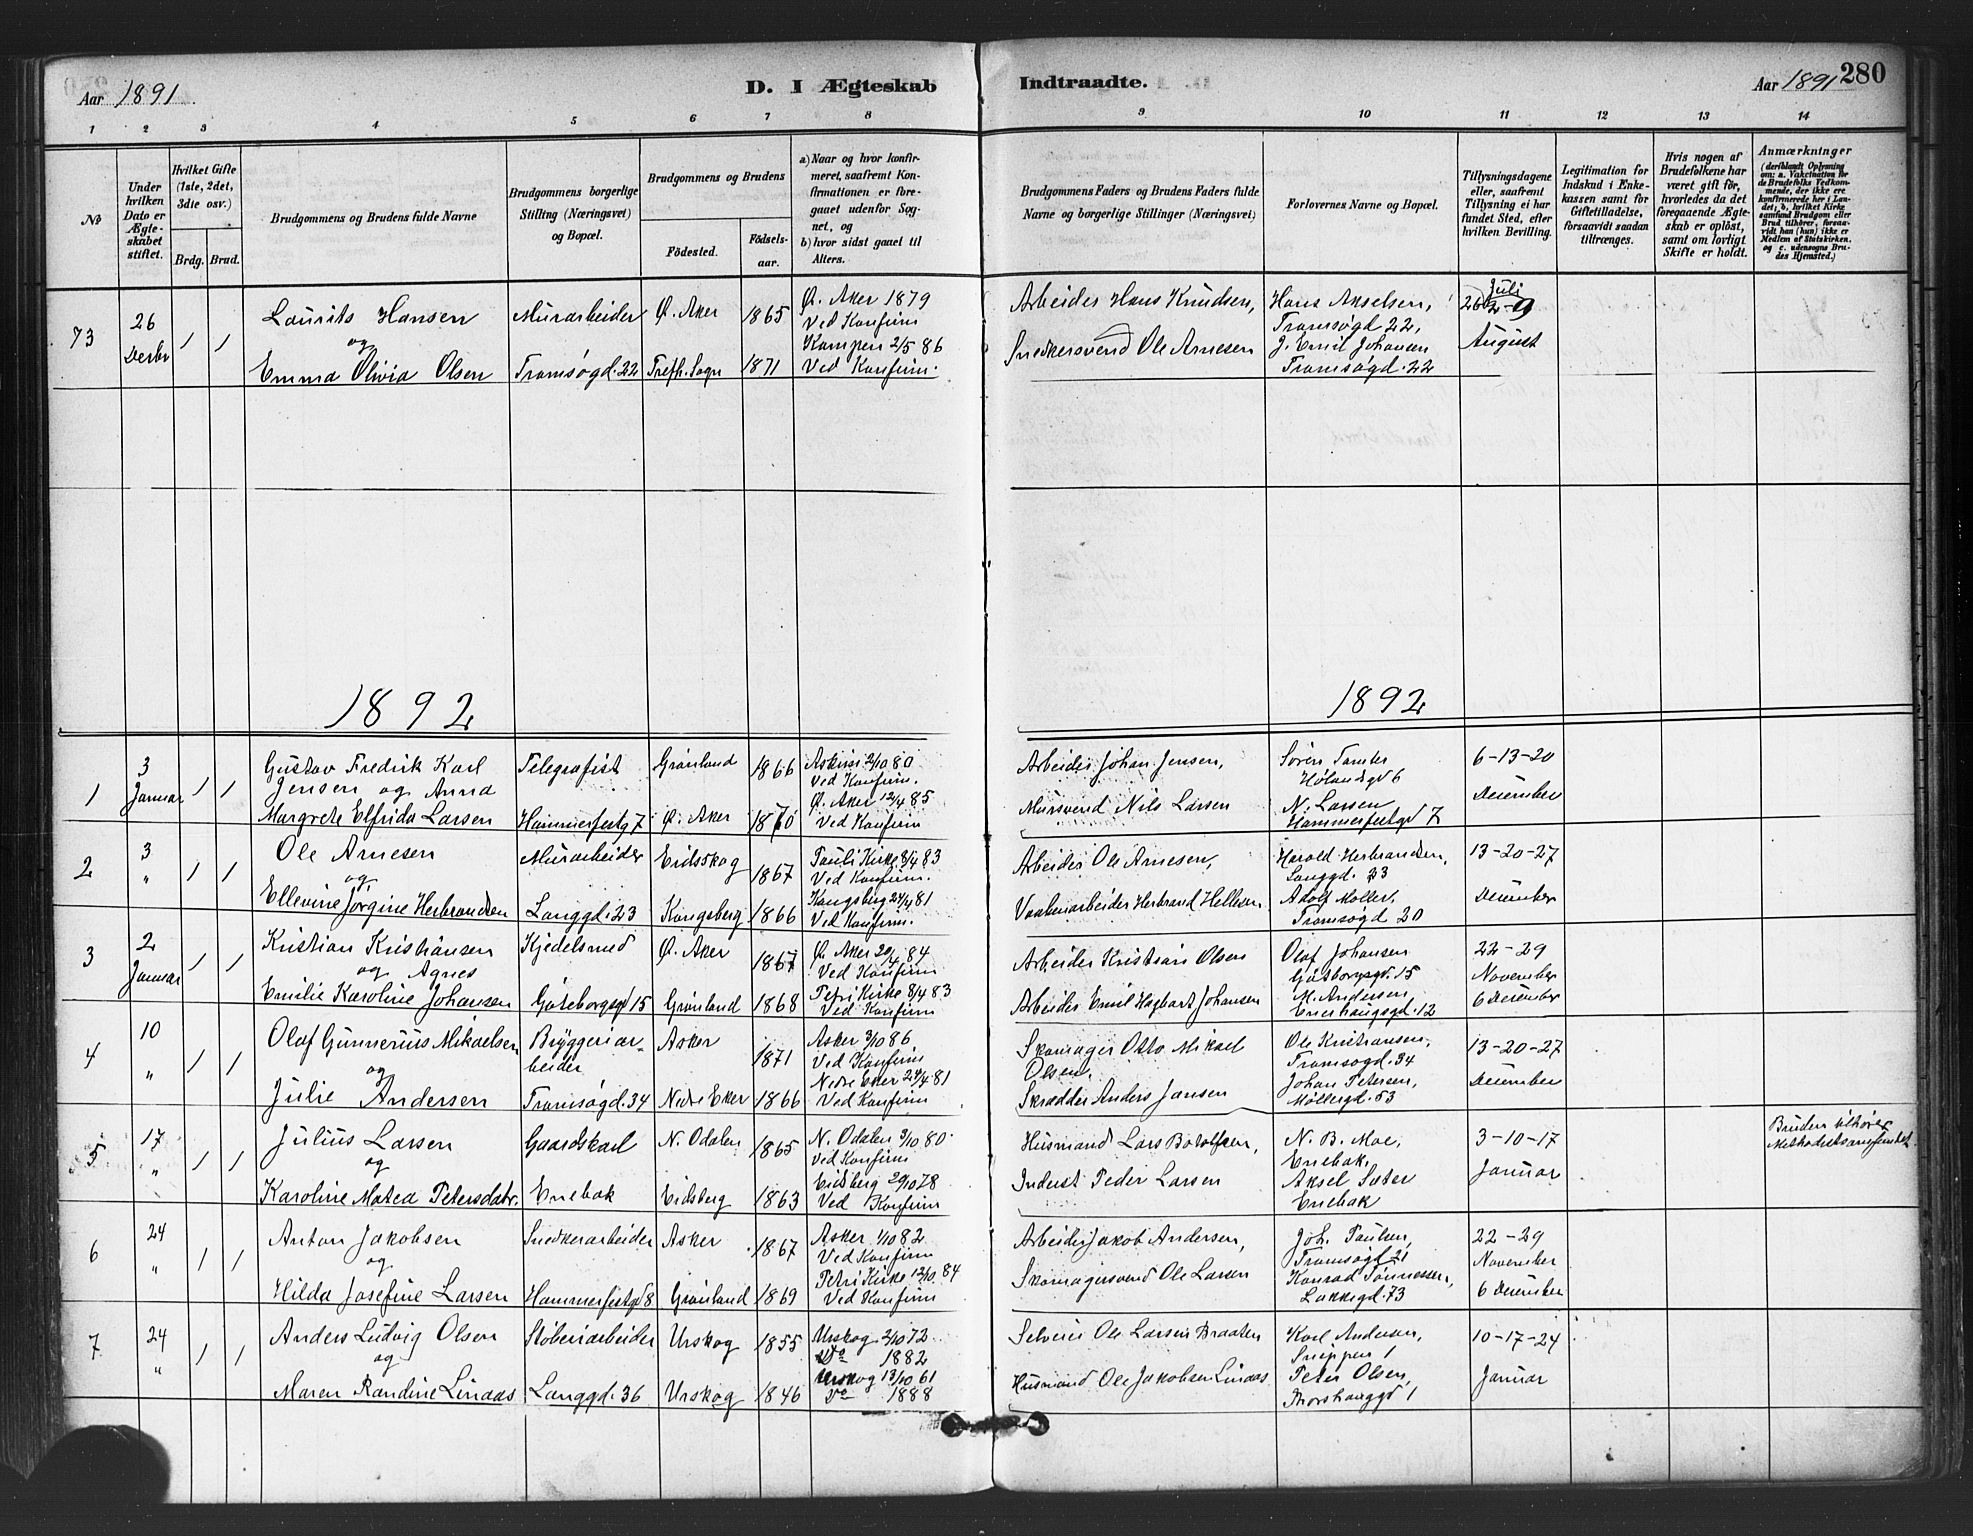 Aar 1891.
D. I Ægteskab
Indtraadte.
Aar 1891
280
1 2 3 4 5 6 7 8
9 10 11 12 13 14
№
Under hvilken Dato er Ægteskabet stiftet.
Hvilket Gifte (1ste, 2det, 3die osv.)
Brdg. Brud.
Brudgommens og Brudens fulde Navne
Brudgommens borgerlige Stilling (Næringsvei) og Bopæl.
Brudgommens og Brudens
Födested.
Födselsaar.
a) Naar og hvor konfirmeret, saafremt Konfirmationen er foregaaet udenfor Sognet, og
b) hvor sidst gaaet til Alters.
Brudgommens Faders og Brudens Faders fulde Navne og borgerlige Stillinger (Næringsvei)
Forlovernes Navne og Bopæl.
Tillysningsdagene eller, saafremt Tillysning ei har fundet Sted, efter hvilken Bevilling.
Legitimation for Indskud i Enkekassen samt for Giftetilladelse, forsaavidt saadan tiltrænges.
Hvis nogen af Brudefolkene har været gift för, hvorledes da det foregaaende Ægteskab er oplöst, samt om lovligt Skifte er holdt.
Anmærkninger
(deriblandt Oplysning om: a. Vakcination for de Brudefolks Vedkommende, der ikke ere konfirmerede her i Landet; b. hvilket Kirkesamfund Brudgom eller Brud tilhörer, forsaavidt han (hun) ikke er Medlem af Statskirken, og c. udensogns Brudes Hjemsted.)
73
26 Decbr
1 1
Laurits Hansen
og
Emma Olivia Olsen
Murarbeider
Tromsøgd. 22
Ø. Aker 1865
Trefh. Sogn 1871
Ø. Aker 1879
Ved Konfirm
Kampen 2/5 86
Ved Konfirm.
Arbeider Hans Knudsen,
Snedkersvend Ole Arnesen
Hans Akselsen,
Tromsøgd 22,
J. Emil Johansen
Tromsøgd. 22
Juli
26 2-9
August
1892
1892
1
3 Januar
1 1
Gustav Fredrik Karl
Jensen og Anna
Margrete Elfrida Larsen
Telegrafist
Hammerfestg 7
Grønland 1866
Ø. Aker 1870
Ved Konfirm.
Ø. Aker 12/4 85
Ved Konfirm
Arbeider Johan Jensen,
Mursvend Nils Larsen
Hølandsgd 6
N. Larsen
Hammerfestgd 7
6-13-20
December
2
3 "
1 1
Ole Arnesen
og
Ellevine Jørgine Herbrandsen
Murarbeider
Langgd. 23
Eidsskog 1867
Kongsberg 1866
Pauli Kirke 8/4 83
Ved Konfirm.
Kongsberg 24/4 81
Ved Konfirm.
Arbeider Ole Arnesen,
Vaabenarbeider Herbrand Hellesen
Harold Herbrandsen,
Langgd. 23
Adolf Møller,
Tromsøgd 20
13-20-27
December
3
2 Januar
1 1
Kristian Kristiansen
og Agnes
Emilie Karoline Johansen
Kjedelsmed
Gøteborgsgd 15
Ø. Aker 1867
Grønland 1868
Ø. Aker 20/4 84
Ved Konfirm
Petri Kirke 8/4 83
Ved Konfirm
Arbeider Kristian Olsen
Arbeider Emil Hagbart Johansen
Olaf Johansen
Gøteborgsgd. 15
M. Andersen
Enerhaugsgd. 12
22-29
November
6 December
4
10 "
1 1
Olaf Gunnerius Mikaelsen
og
Julie Andersen
Bryggeriar-
beider
Tromsøgd. 34
Asker 1871
Nedre Eker 1866
Asker 3/10 86
Ved Konfirm
Nedre Eker 24/4 81
Ved Konfirm
Skomager Otto Mikael
Olsen,
Skrædder Anders Jansen
Ole Kristiansen,
Tromsøgd. 34
Johan Petersen,
Møllergd. 53
13-20-27
December
5
17 "
1 1
Julius Larsen
og
Karoline Matea Petersdatr.
Gaardskarl
Enebak
N. Odalen 1865
Eidsberg 1863
N. Odalen 3/10 80.
Ved Konfirm
Eidsberg 29/10 78
Ved Konfirm
Husmand Lars Botolfsen,
Inderst Peder Larsen
N. B. Moe,
Enebak,
Aksel Sæter
Enebak
3-10-17
Januar
Bruden tilhører
Methodistsamfundet
6
24 "
1 1
Anton Jakobsen
og
Hilda Josefine Larsen
Snedkerarbeider
Hammerfestgd 8
Asker 1867
Grønland 1869
Asker 1/10 82
Ved Konfirm
Petri Kirke 12/10 84
Ved Konfirm
Arbeider Jakob Andersen,
Skomagersvend Ole Larsen
Joh. Paulsen,
Tromsøgd 21
Konrad Tønnessen,
Lakkegd. 73
22-29
November
6 December
7
24 "
1 1
Anders Ludvig Olsen
og
Maren Randine Linaas
Støberiarbeider
Langgd. 36
Urskog 1855
Urskog 1846
Urskog 2/10 72
Do 1882
Urskog 13/10 61
Do 1888
Selveier Ole Larsen Braaten
Husmand Ole Jakobsen Linaas
Karl Andersen,
Snippen 1
Peter Olsen,
10-17-24
Januar